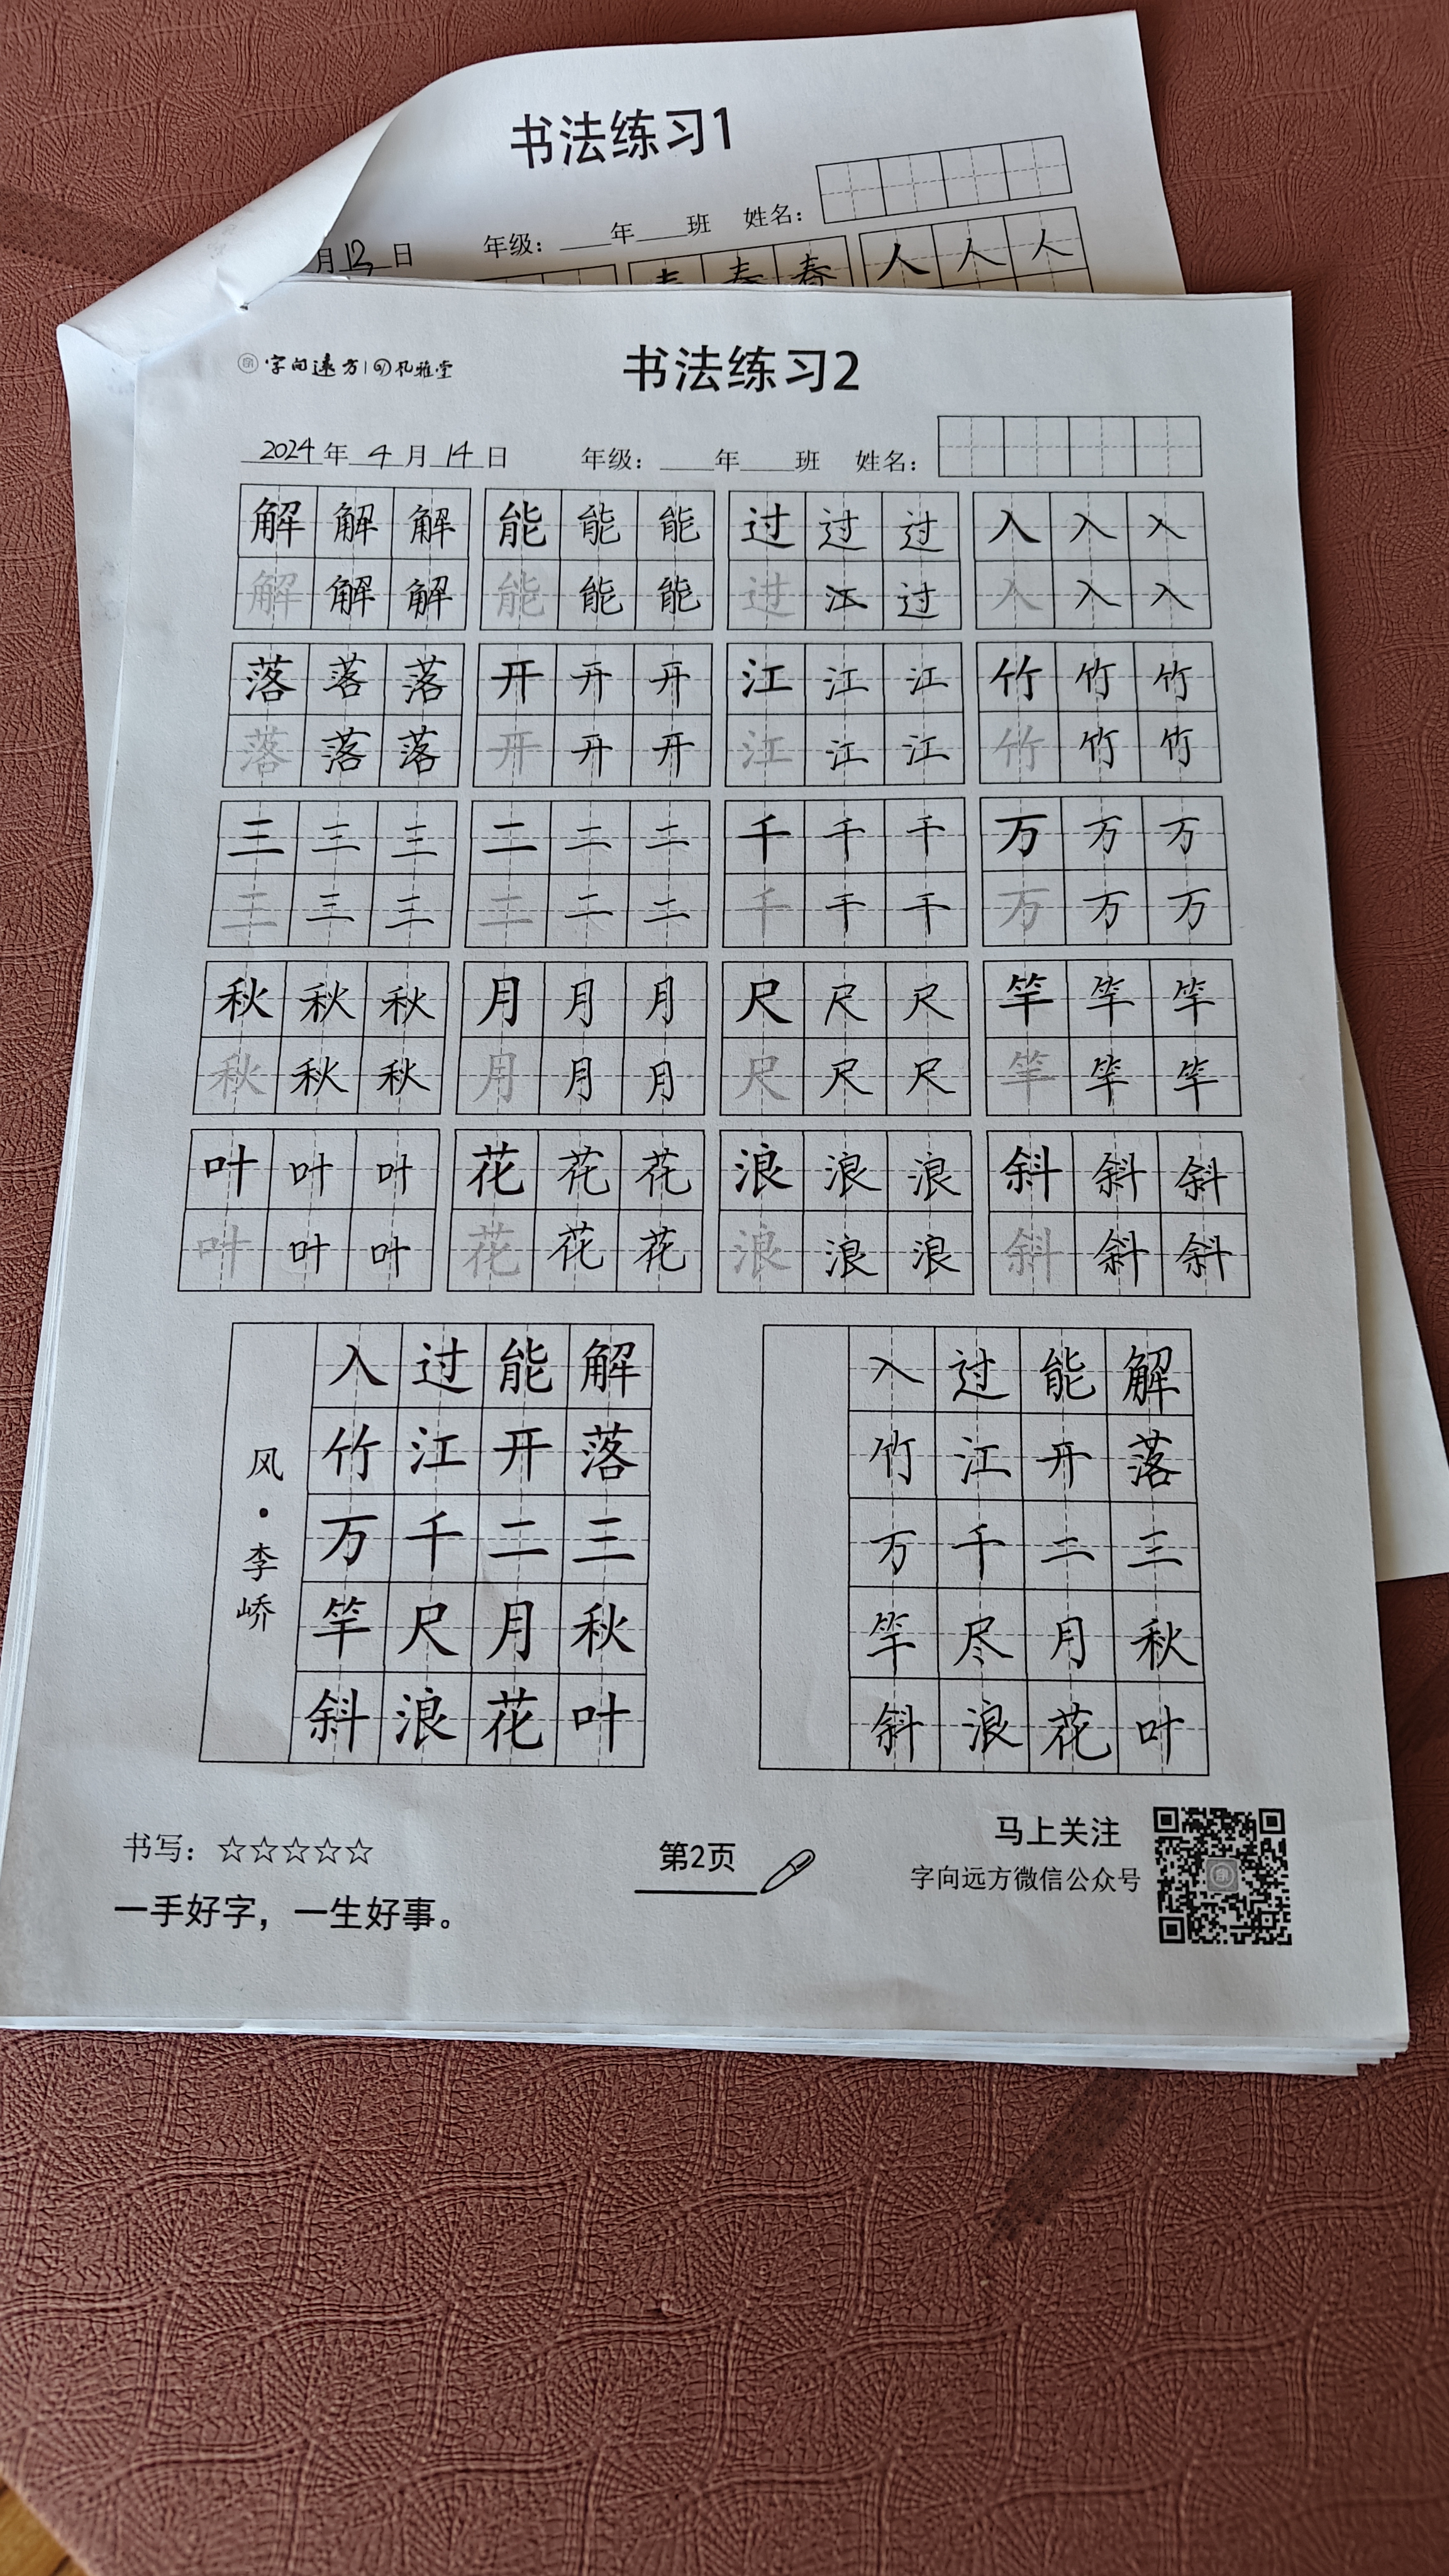 书法练习1
月 13 日 年级： 年 班 姓名：
春 春 春 人 人 人
字向遠方 风雅堂
书法练习2
2024 年 4 月 14 日 年级： 年 班 姓名：
解 解 解 能 能 能 过 过 过 入 入 入
解 解 解 能 能 能 过 江 过 入 入 入
落 落 落 开 开 开 江 江 江 竹 竹 竹
落 落 落 开 开 开 江 江 江 竹 竹 竹
三 三 三 二 二 二 千 千 千 万 万 万
三 三 三 二 二 二 千 千 千 万 万 万
秋 秋 秋 月 月 月 尺 尺 尺 竿 竿 竿
秋 秋 秋 月 月 月 尺 尺 尺 竿 竿 竿
叶 叶 叶 花 花 花 浪 浪 浪 斜 斜 斜
叶 叶 叶 花 花 花 浪 浪 浪 斜 斜 斜
风·李峤
解落三秋叶
能开二月花
过江千尺浪
入竹万竿斜
解落三秋叶
能开二月花
过江千尽浪
入竹万竿斜
书写：☆☆☆☆☆
一手好字，一生好事。
第2页
马上关注
字向远方微信公众号